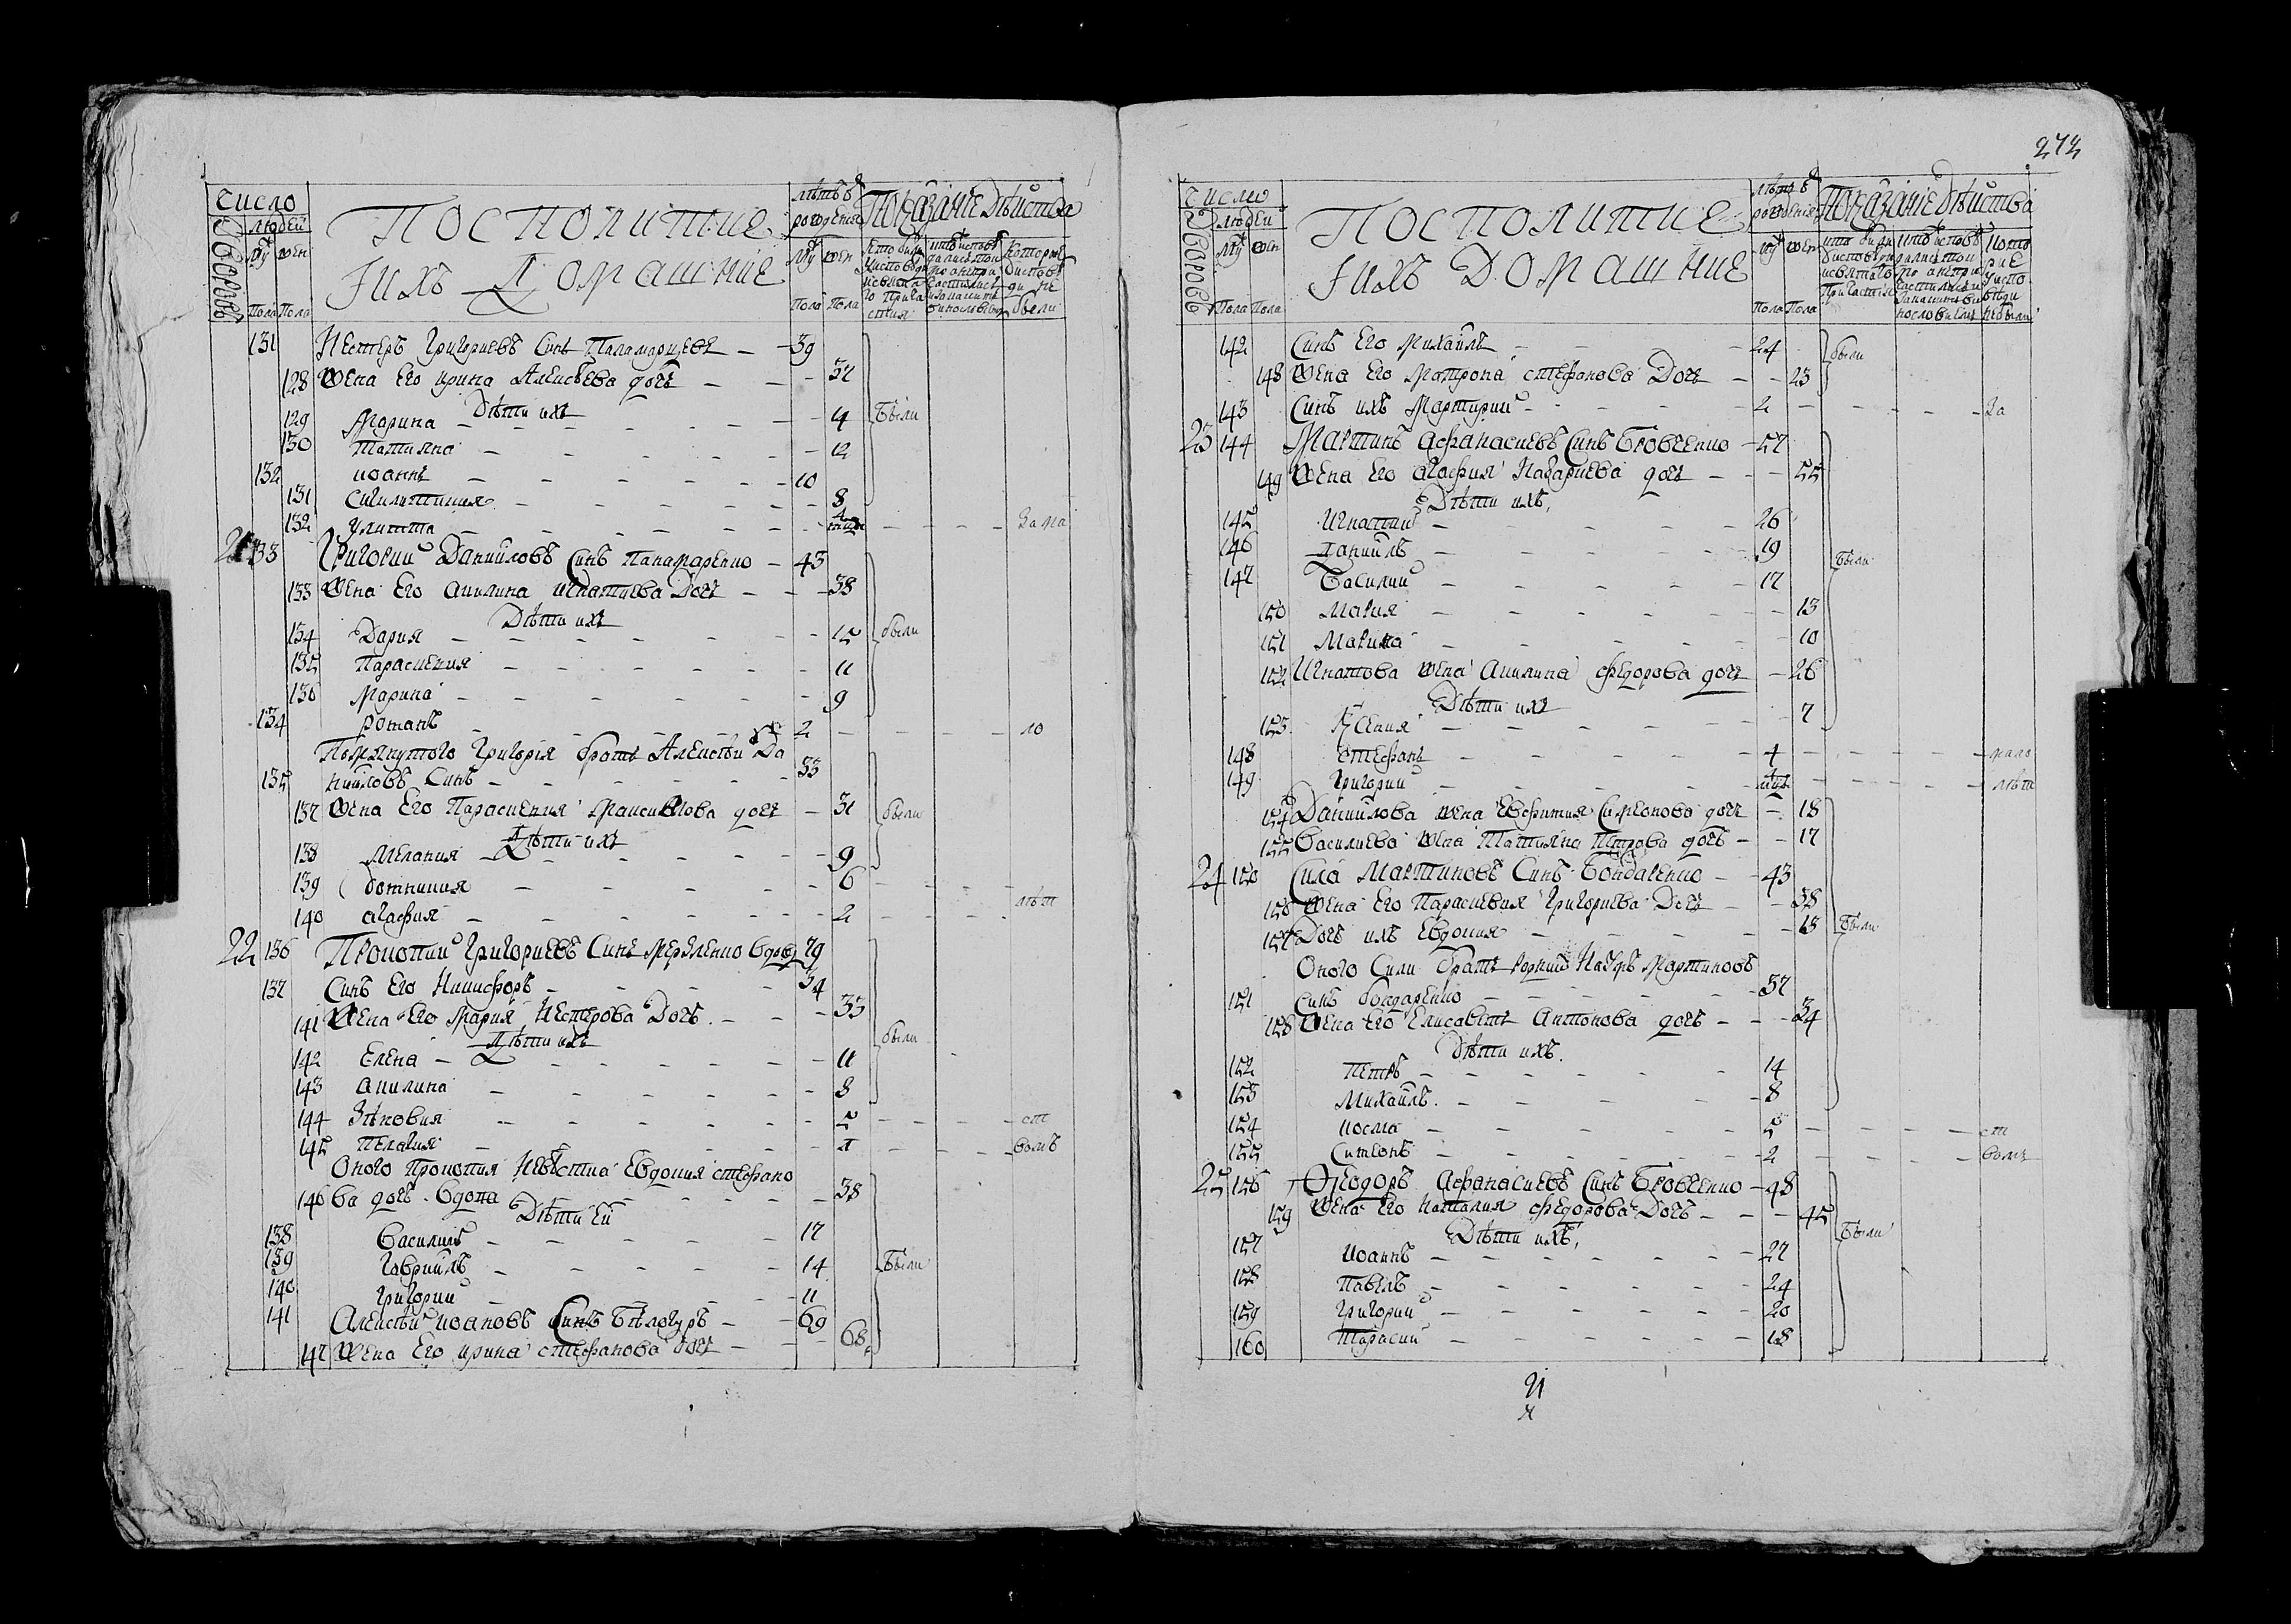 число
Дворовъ
людей
Му
жен
Пола
Пола
Посполитие
иихъ Домашние
лѣтъ ѿ
рождения
Му
жен
Пола
Пола
Показание дѣиства
131 Нестеръ Григориевъ Синъ Паламарцевъ — 39
128 Жена Его ирина Алексѣева дочь — 37
Дѣти ихъ
129 Марина — 4 Были
130 Татияна — 12
132 иоаннъ — 10
131 Сигклитикия — 8
132 Улитта — За ма
21 133 Григории Данииловъ Синъ Панамаренко — 43
133 Жена Его Акилина Игнатиева Дочь — 38
Дѣти ихъ
134 Дария — 15 были
135 Параскевия — 11
136 Марина — 9
134 Романъ — 2 — ло
Помянутого Григория братъ Алексѣй Да
135 нииловъ Синъ — 33
137 Жена Его Параскевия Максимова дочь — 31 были
Дѣти ихъ
138 Мелания — 9
139 Домникия — 6
140 агафия — 2 лѣт
22 136 Прокопии Григориевъ Синъ Мерзленко вдов 79
137 Синъ Его Никифоръ — 54
141 Жена Его Мария Нестерова Дочь — 33
Дѣти ихъ были
142 Елена — 11
143 акилина — 8
144 Зѣновия — 5 — ст
145 Пелагия — 1 — вомъ
Оного Прокопия Невѣстка Евдокия стефано
146 ва дочь вдова — 38
Дѣти Ей
138 Василий — 17
139 Гавриилъ — 14 Были
140 Григории — 11
141 Алексѣй иоановъ Синъ Бѣлогуръ — 69
147 Жена Его ирина стефанова дочь — 68
272
число
Дворовъ
людей
Му
жен
Пола
Пола
Посполитие
иихъ Домашние
лѣтъ ѿ
рождения
Му
жен
Пола
Пола
Показание дѣиства
142 Синъ Его Михаилъ — 24 были
148 Жена Его Матрона стефанова Дочь — 23
143 Синъ ихъ Мартирии — 2 — За
23 144 Мартинъ афанасиевъ Синъ Бровченко — 57
149 Жена Его агафия Назариева дочь — 55
Дѣти ихъ,
145 Игнатии — 26
146 Даниилъ — 19 Были
147 Василии — 17
150 Мария — 13
151 Марина — 10
152 Игнатова жена Акилина федорова дочь — 26
Дѣти ихъ
153 Ксения — 7
148 стефанъ — 4 — мало
149 Григории — лѣт
154 Даниилова жена Евфимия Симеонова дочь — 18
155 Василиева жена Татияна Петрова дочь — 17
24 150 Сила Мартиновъ Синъ Бондаренко — 43
156 Жена Его Параскевия Григориева Дочь — 38
157 Дочь ихъ Евдокия — 13 Были
Оного Сили братъ Мартиновъ
151 синъ бондаренко — 37
158 Жена Его Елисаветъ Антонова дочь — 34
Дѣти ихъ.
152 Петръ — 14
153 Михаилъ — 8
154 косма — 5 — ст
155 Симеонъ — 2 — вомъ
25 156 Ѳеодоръ Афанасиевъ Синъ Бровченко — 48
159 Жена Его Наталия федорова Дочь — 45
Дѣти ихъ, Были
157 Иоаннъ — 27
158 Павелъ — 24
159 Григории — 20
160 Тарасии — 18